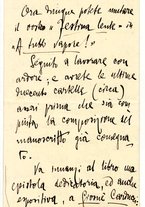 Ora dunque potete mutare
il vostro "Festina lente" in
"A tutto vapore!"
Seguito a lavorare con
ardore; e avrete le ultime
cartelle (circa)
anzi prima che sia com
piuta la composizione del
manoscritto già consegna
to.
Va innanzi al libro una
epistola dedicatoria, ed anche
espositiva, a Giosue Carducci